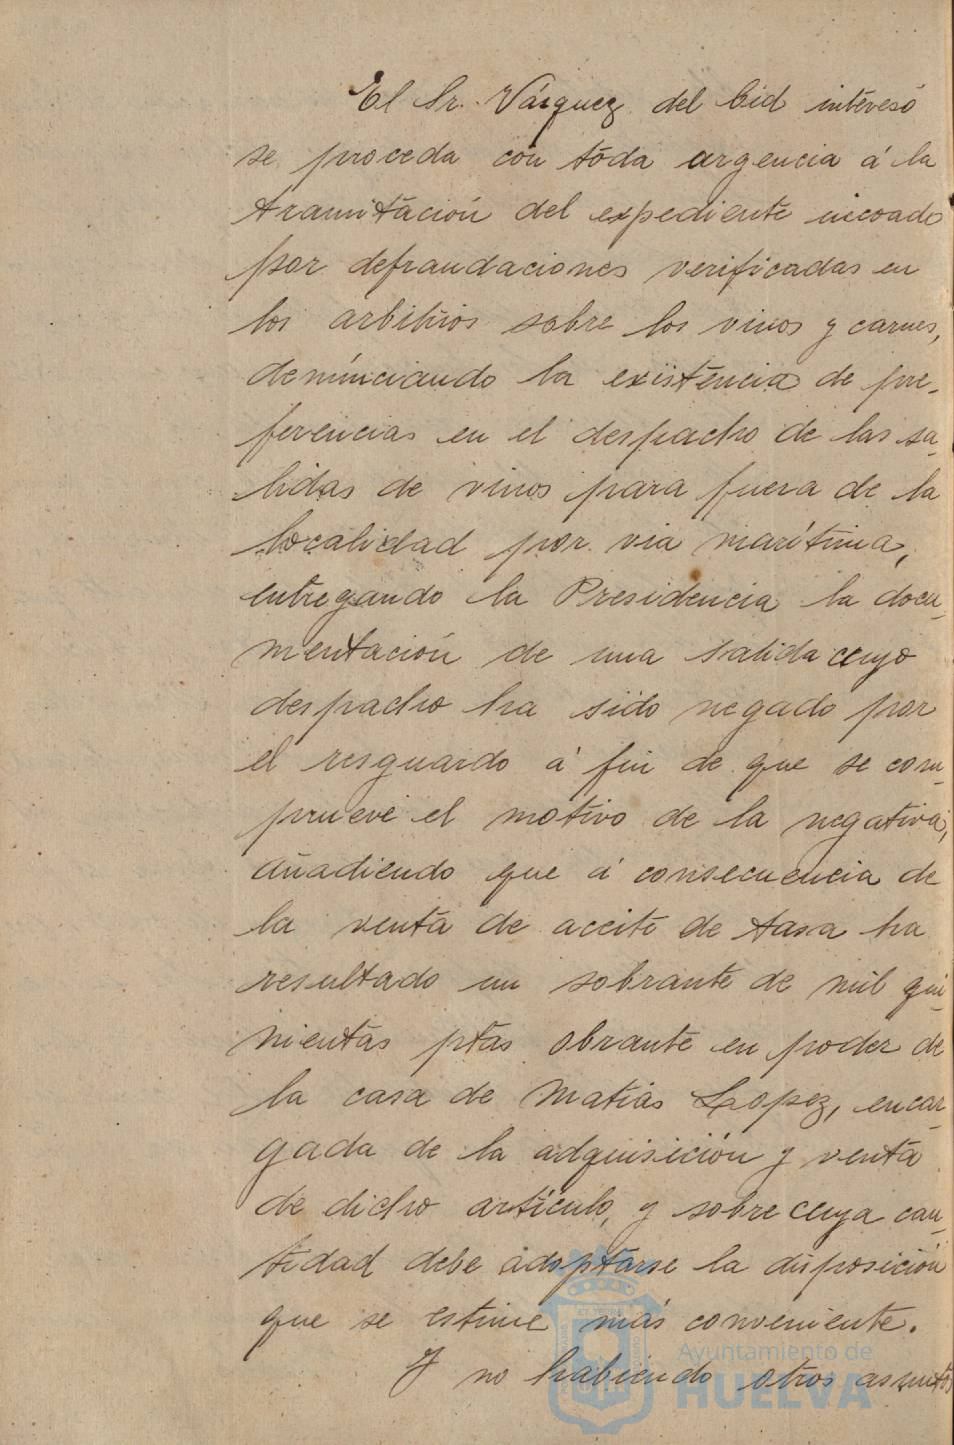 El Sr. Vázquez del Cid interesó
se proceda con toda urgencia á la
tramitación del expediente incoado
por defraudaciones verificadas en
los arbitrios sobre los vinos y carnes,
denunciando la existencia de pre-
ferencias en el despacho de las sa-
lidas de vinos para fuera de la
localidad por via marítima,
entregando la Presidencia la docu-
mentación de una salida cuyo
despacho ha sido negado por
el resguardo á fin de que se com-
prueve el motivo de la negativa,
añadiendo que á consecuencia de
la venta de aceite de tasa ha
resultado un sobrante de mil qui-
nientas ptas obrante en poder de
la casa de Matias Lopez, encar-
gada de la adquisición y venta
de dicho artículo, y sobre cuya can-
tidad debe adoptarse la disposición
que se estime más conveniente.
Y no habiendo otros asuntos
Ayuntamiento de
HUELVA